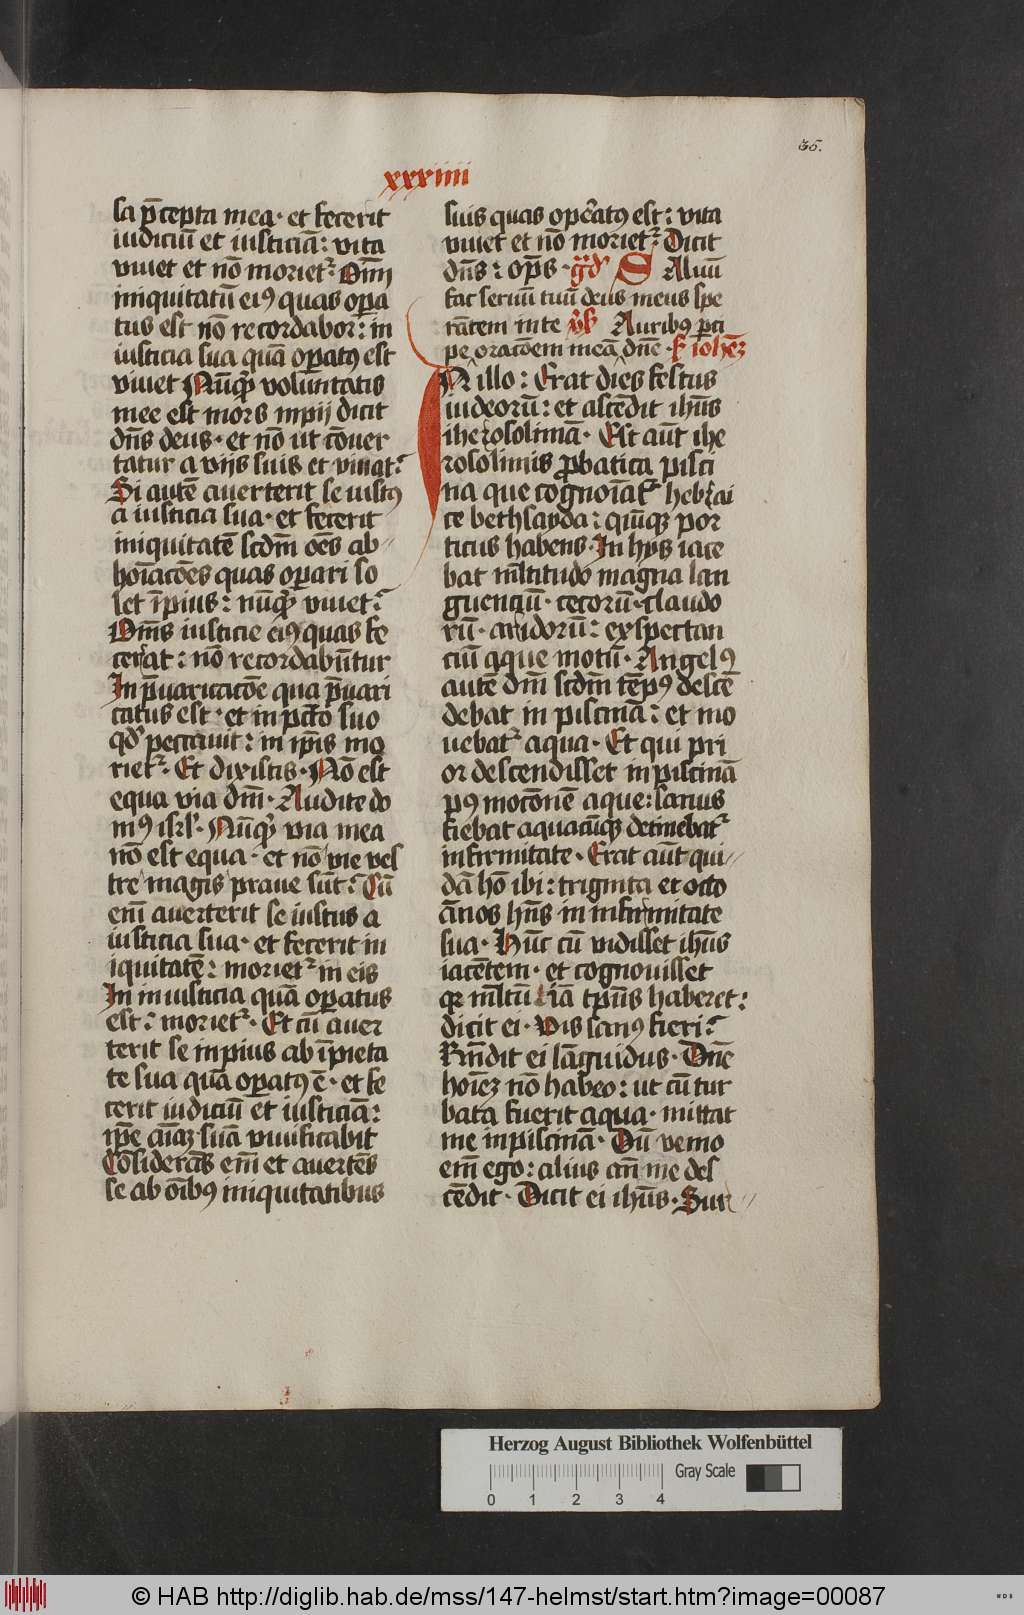 35.
xxxiiii
sa p̄cepta mea · et fecerit
iudiciū et iusticiā : vita
viuet et nō moriet᷑ Om̄
iniquitatū ei⁹ quas oꝑa
tus est nō recordabor : in
iusticia sua quā oꝑat⁹ est
viuet Nūqͥd voluntatis
mee est mors inpij dicit
dn̄s deus · et nō ut cōuer
tatur a vijs suis et viuat
Si autē auerterit se iust⁹
a iusticia sua · et fecerit
iniquitatē scdm̄ oēs ab〃
hoīacōes quas oꝑari so
let īpius : nūqͥd viuet
Om̄s iusticie ei⁹ quas fe
cerat : nō recordabūtur
In p̄uaricacōe qua p̄uari
catus est · et in pctō suo
qd̓ peccauit : in ip̄is mo
riet᷑ · Et dixistis · Nō est
equa via dnī · Audite do
m⁹ isrl̓ · Nūqͥd via mea
nō est equa · et nō vie ves
tre magis praue sūt Cū
enī auerterit se iustus a
iusticia sua · et fecerit in
iquitatē : moriet᷑ in eis
In iniusticia quā oꝑatus
est : moriet᷑ · Et cū auer
terit se inpius ab īpieta
te sua quā oꝑat⁹ ē · et fe
cerit iudiciū et iusticiā :
ip̄e aīaꝫ suā viuificabit
Cōsiderās enī et auertēs
se ab oīb⁹ iniquitatibus
suis quas oꝑat⁹ est : vita
viuet et nō moriet᷑ Dicit
dn̄s : op̄s · gͣd̓ S Aluū
fac seruū tuū deus meus spe
rātem in te v̓s̓ Aurib⁹ ꝑci
pe oracōem meā dn̄e · s̄ iohēꝫ
IN illo : Erat dies festus
iudeorū : et ascēdit ih̄us
iherosolimā · Est aūt ihe
rosolimis ꝓbatica pisci
na que cognoīat᷑ hebrai
ce bethsayda : qīnqꝫ por
ticus habens · In hijs iace
bat ml̄titudo magna lan
guenciū · cecorū · claudo
rū · aridorū : exspectan
ciū aque motū · Angel⁹
autē dnī scdm̄ tēp⁹ descē
debat in piscinā : et mo
uebat᷑ aqua · Et qui pri
or descendisset in piscinā
p⁹ mocōnē aque : sanus
fiebat aquacūqꝫ detinebat᷑
infirmitate · Erat aūt qui〃
dā hō ibi : triginta et octo
ānos hn̄s in infirmitate
sua · Hūc cū vidisset ih̄us
iacētem · et cognouisset
qꝛ ml̄tū iā tp̄us haberet :
dicit ei · Vis san⁹ fieri
Rn̄dit ei lāguidus · Dn̄e
hoīeꝫ nō habeo : ut cū tur
bata fuerit aqua · mittat
me in piscinā · Dū venio
enī ego : alius an̄ me des
cēdit · Dicit ei ih̄us · Sur〃
Herzog August Bibliothek Wolfenbüttel
Gray Scale
0 1 2 3 4
© HAB http://diglib.hab.de/mss/147-helmst/start.htm?image=00087